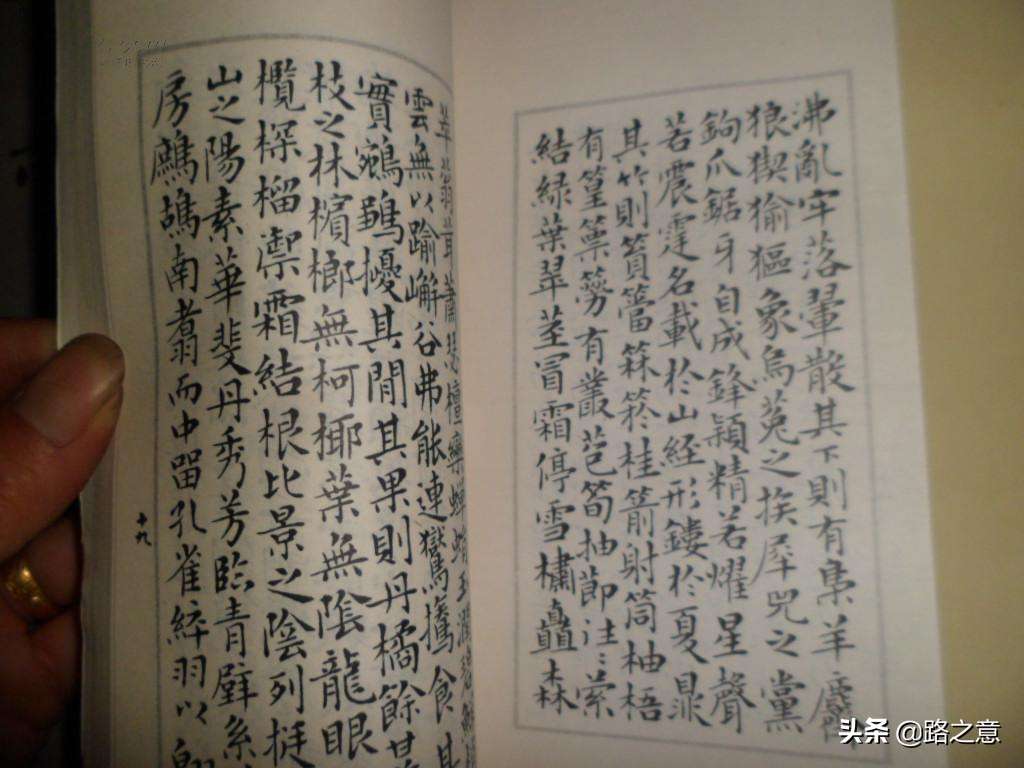 沸亂牢落翬散其下則有梟羊
狼猰㺄貙象烏菟之族犀兕之黨
鉤爪鋸牙自成鋒穎精若耀星聲
若震霆名載於山經形鏤於夏鼎
其竹則篔簹箖菸桂箭射筒柚梧
有篁篻簩有叢苞筍抽節注〻縈
結綠葉翠莖冒霜停雪橚矗森
萃蓊茸蕭瑟檀欒蟬蜎玉潤碧鮮
雲無以踰嶰谷弗能連鸑鷟食其
實鵷鶵擾其間其果則丹橘餘甘
枝之林檳榔無柯椰葉無陰龍眼
欖探榴禦霜結根比景之陰列挺
山之陽素華斐丹秀芳臨青壁系
房鷓鴣南翥而中留孔雀綷羽以
十九
头条 @路之意